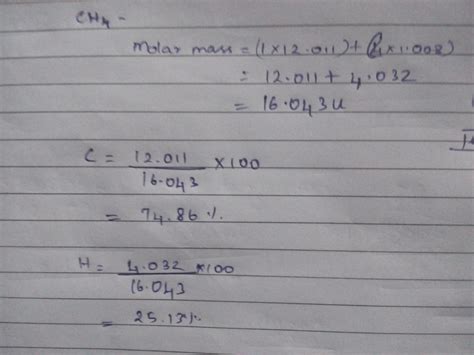 CH4 -
Molar mass = (1×12.011) + (4×1.008)
= 12.011 + 4.032
= 16.043u
C = 12.011 ×100
16.043
= 74.86 %.
H = 4.032 ×100
16.043
= 25.13%